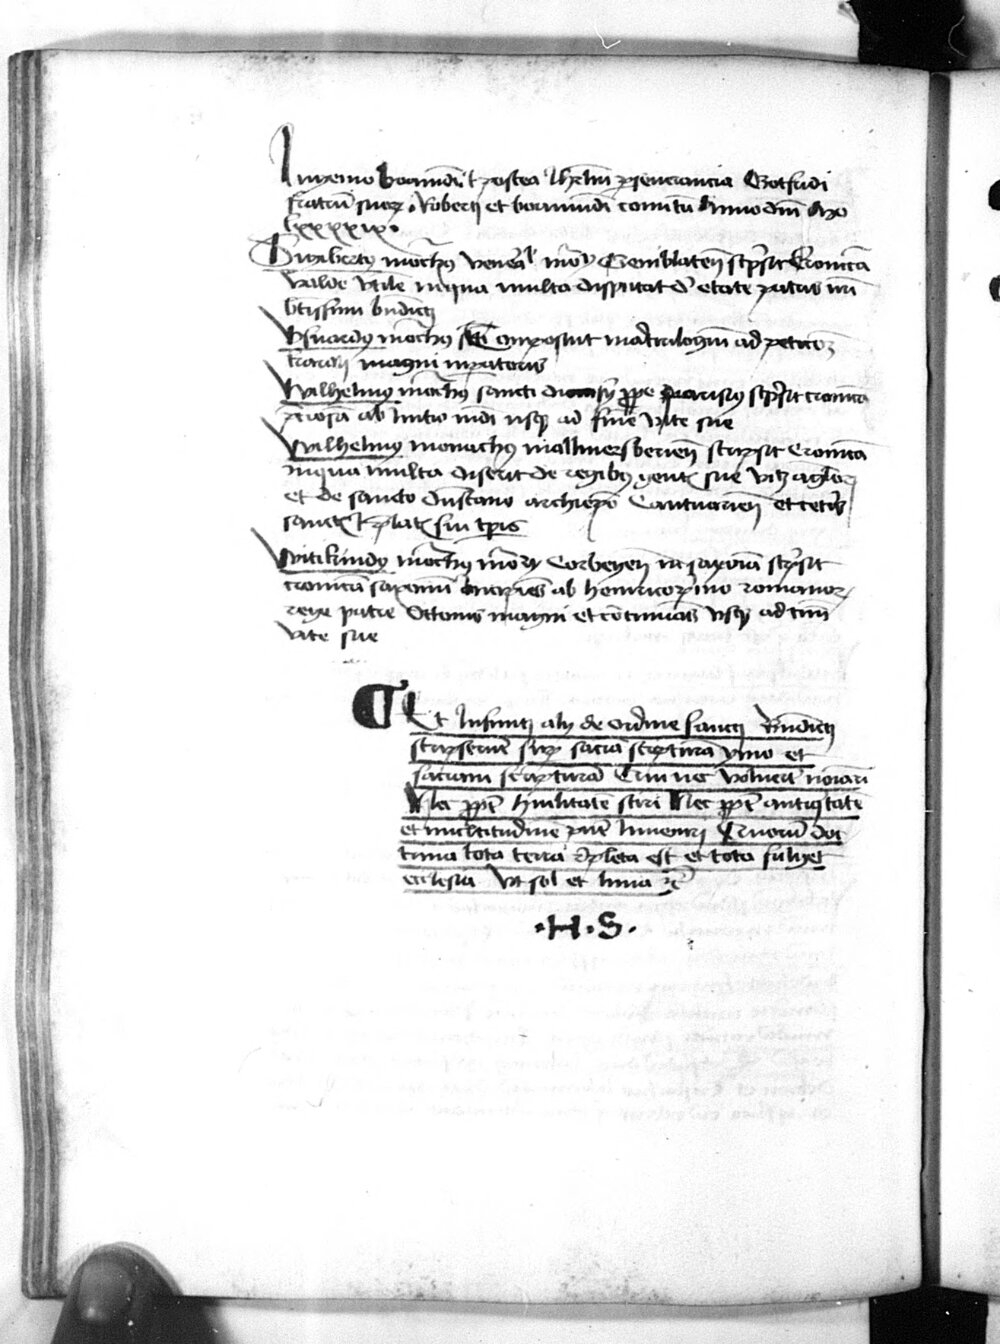 Ingenio boamundi et postea Wilhelmi perseverancia Gotfridi
fratrum suorum Roberti et boamundi comitum Anno domini Mo
lxxxxix.
Sigibertus monachus venerabilis monasterii Gemblacensis scripsit Cronicam
valde utilem in qua multa disputat de etate patris nostri
beatissimi benedicti
Usuardus monachus Composuit martirilogium ad peticionem
karoli magni imperatoris
Wilhelmus monachus sancti dionisii prope parisius scripsit cronicam
preciosam ab Inicio mundi usque ad finem vite sue
Wilhelmus monachus mallmersberiensis scripsit Cronicam
in qua multa diserit de regibus gentis sue videlicet anglorum
et de sancto dunstano archiepiscopo Cantuariensi et ceteris
sanctis et prelatis sui temporis
Witikindus monachus monasterii Corbeyensis in saxonia scripsit
cronicam saxonum incipiens ab henrico primo romanorum
rege patre Ottonis magni et continuans usque ad terminum
vite sue
Et Infiniti alii de ordine sancti Benedicti
scripserunt super sacram scripturam ymo et
sacram scripturam Qui nec voluerunt nominari
Nec propter humilitatem sciri Nec propter antiquitatem
et multitudinem possunt Inveniri Quorum doc
trina tota terra repleta est et tota fulget
ecclesia Ut sol et luna etc
.H.S.